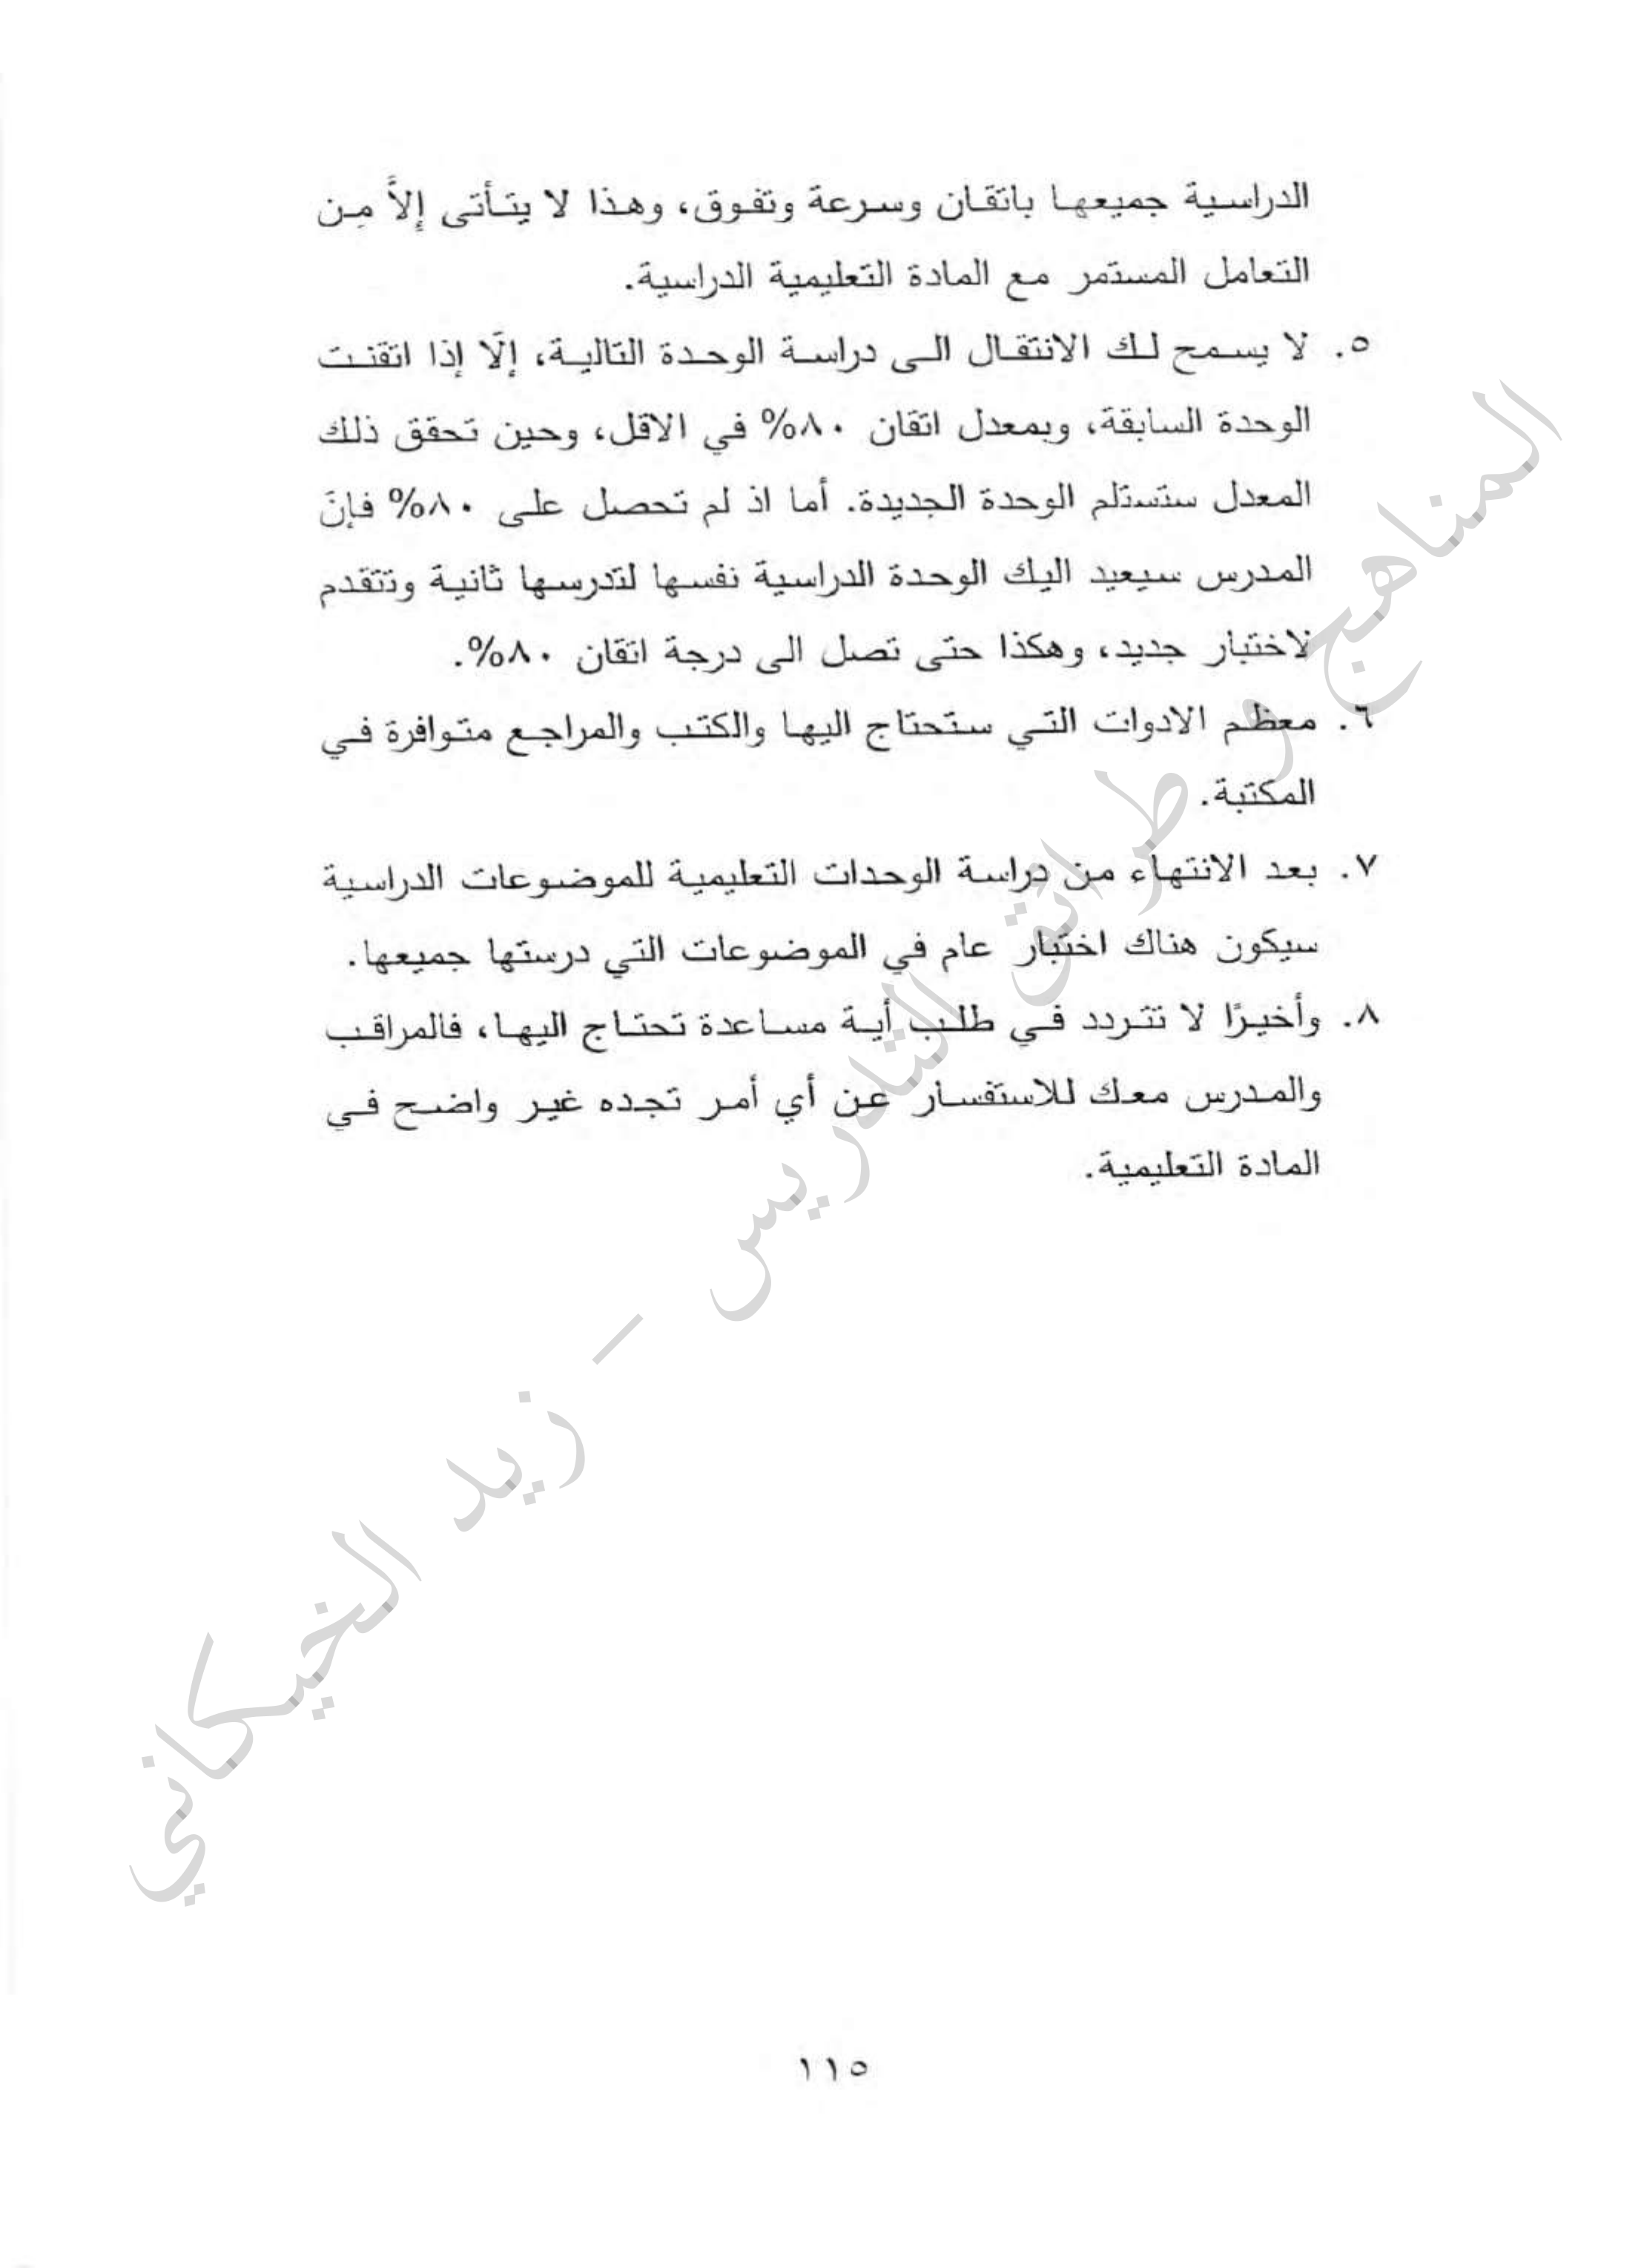 الدراسية جميعها باتقان وسرعة وتفوق، وهذا لا يتأتى إلاَّ مِن
التعامل المستمر مع المادة التعليمية الدراسية.
٥. لا يسمح لك الانتقال الى دراسة الوحدة التالية، إلّا إذا اتقنت
الوحدة السابقة، وبمعدل اتقان ٨٠% في الاقل، وحين تحقق ذلك
المعدل ستستلم الوحدة الجديدة. أما اذ لم تحصل على ٨٠% فإنّ
المدرس سيعيد اليك الوحدة الدراسية نفسها لتدرسها ثانية وتتقدم
لاختبار جديد، وهكذا حتى تصل الى درجة اتقان ٨٠%.
٦. معظم الادوات التي ستحتاج اليها والكتب والمراجع متوافرة في
المكتبة.
٧. بعد الانتهاء من دراسة الوحدات التعليمية للموضوعات الدراسية
سيكون هناك اختبار عام في الموضوعات التي درستها جميعها.
٨. وأخيرًا لا تتردد في طلب أية مساعدة تحتاج اليها، فالمراقب
والمدرس معك للاستفسار عن أي أمر تجده غير واضح في
المادة التعليمية.
المناهج و طرائق التدريس – زيد الخيكاني
١١٥